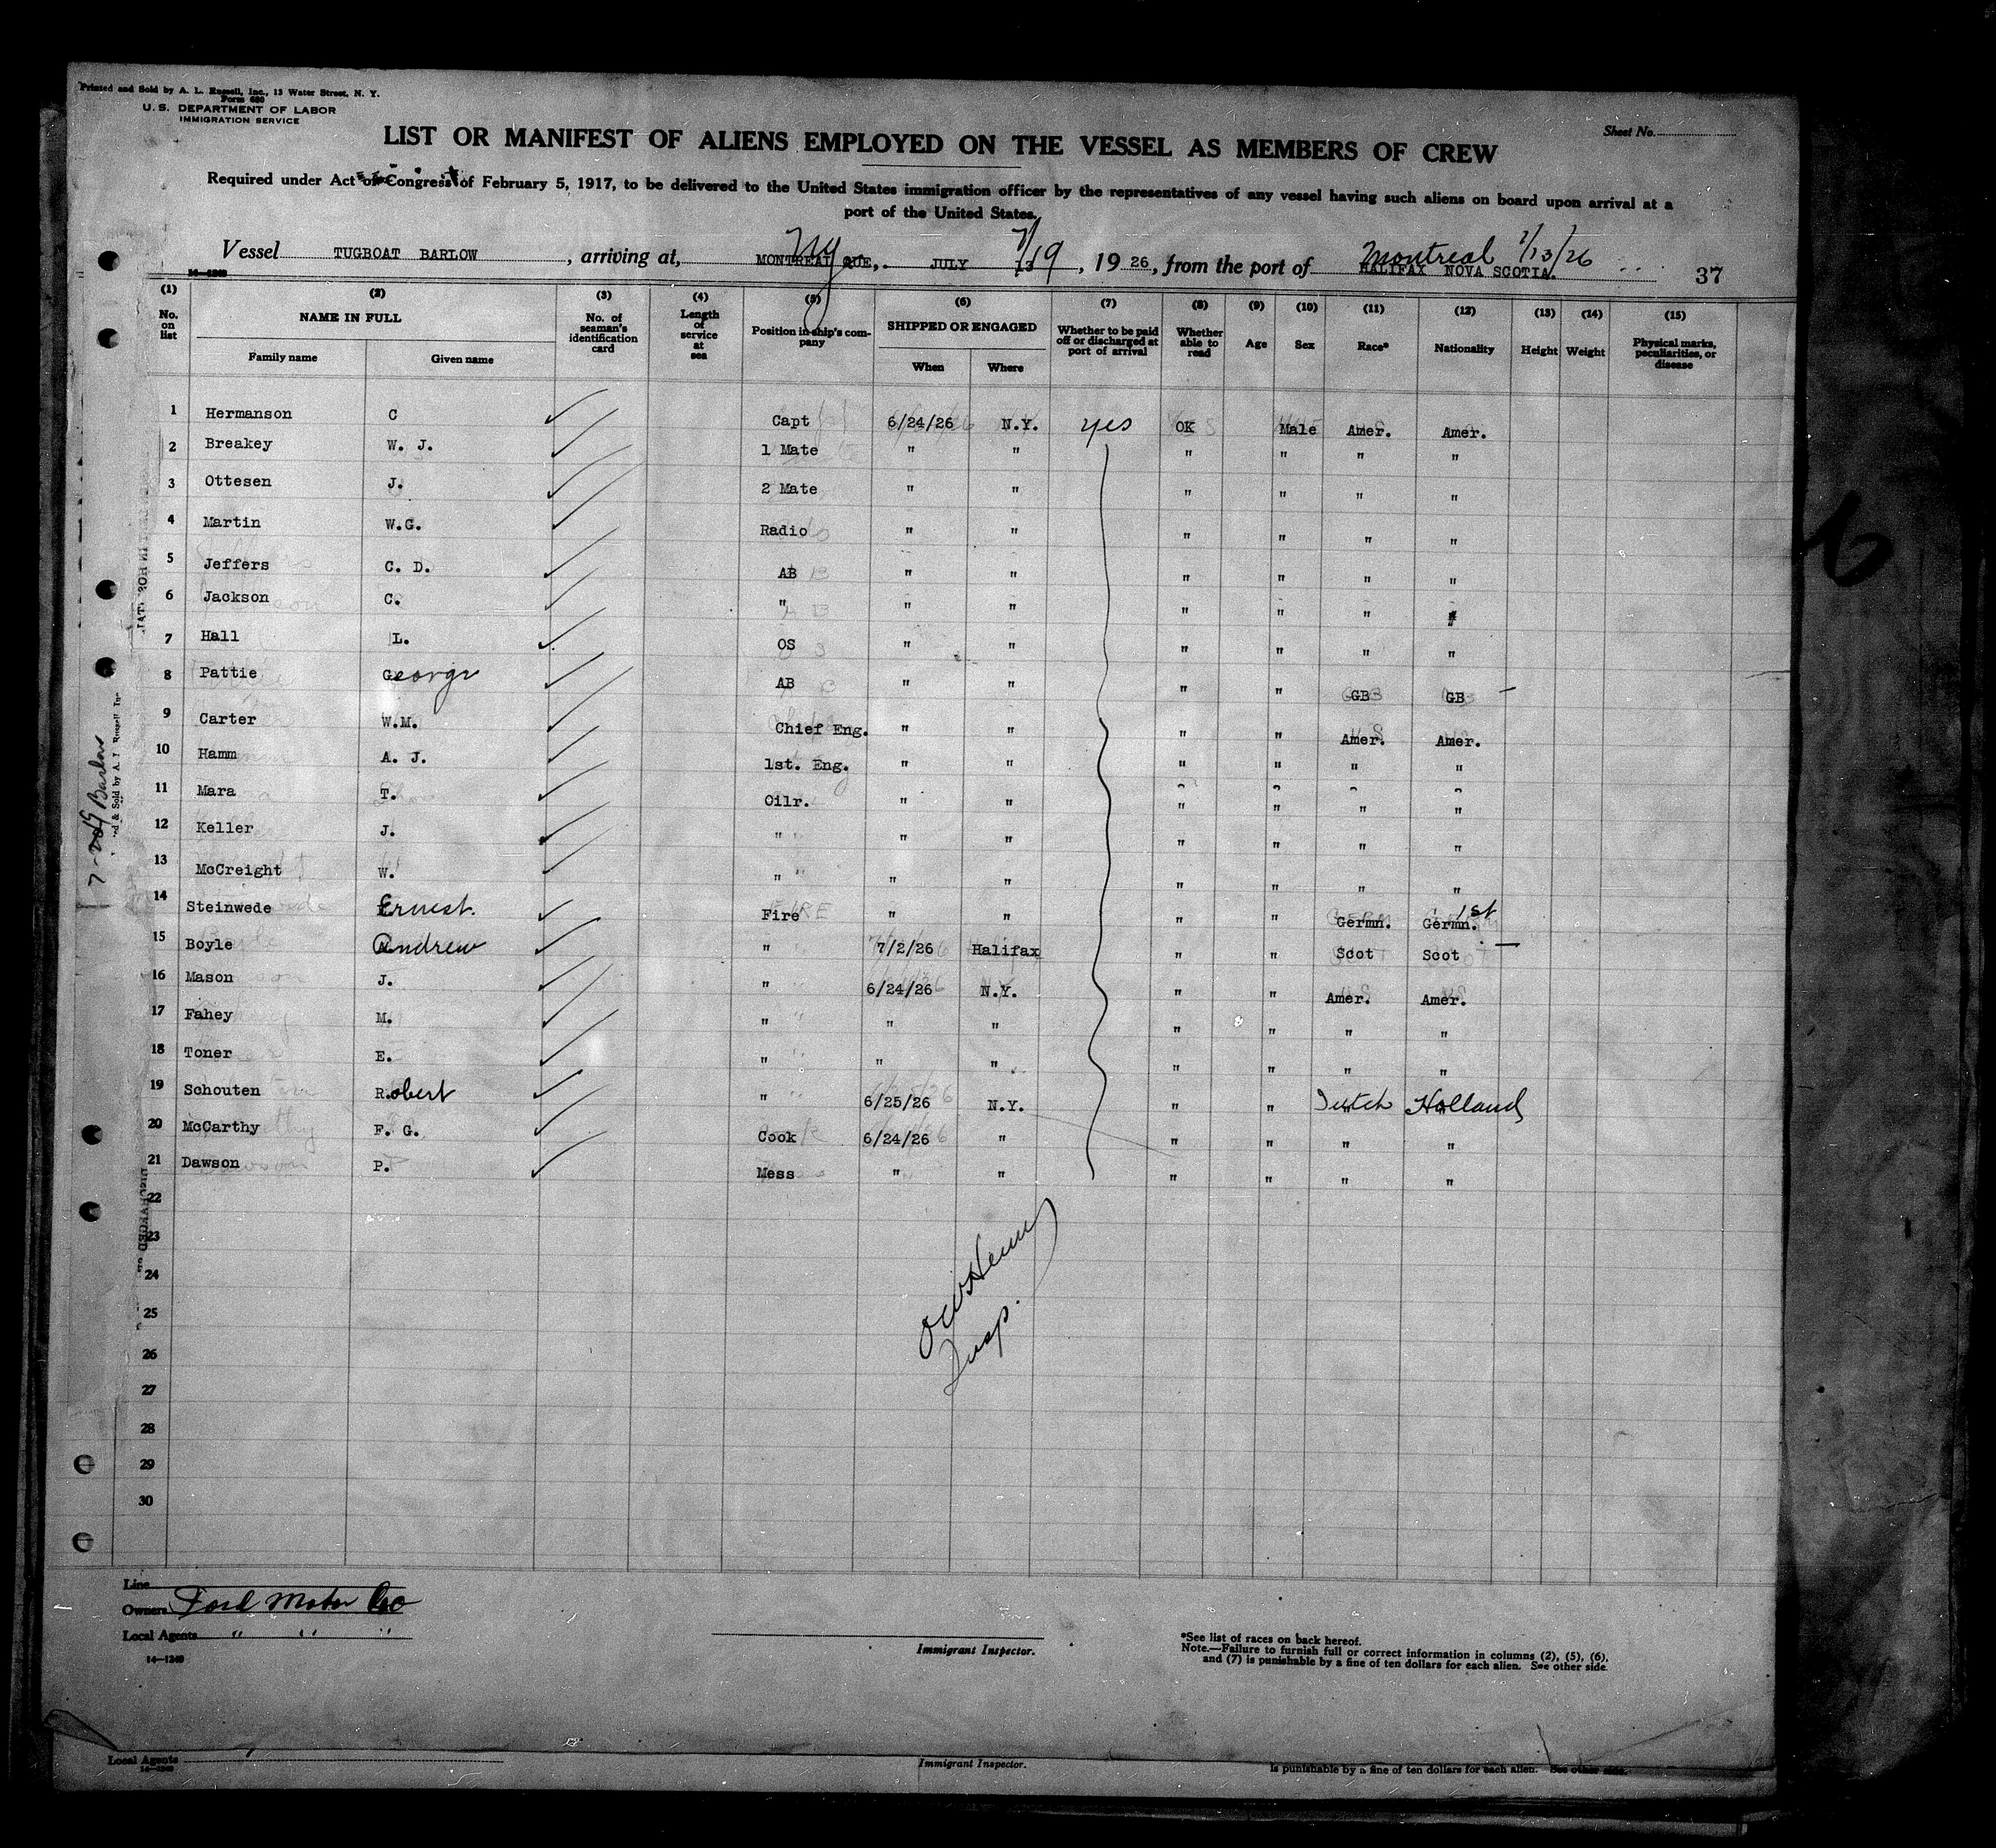 Printed and Sold by A. L. Russell, Inc., 13 Water Street, N. Y.
Form 680
U. S. DEPARTMENT OF LABOR
IMMIGRATION SERVICE
Sheet No.
LIST OR MANIFEST OF ALIENS EMPLOYED ON THE VESSEL AS MEMBERS OF CREW
Required under Act of Congress of February 5, 1917, to be delivered to the United States immigration officer by the representatives of any vessel having such aliens on board upon arrival at a
port of the United States.
NY 7/19 Montreal 7/13/26
Vessel TUGBOAT BARLOW, arriving at, MONTREAL QUE, JULY 13, 1926, from the port of HALIFAX NOVA SCOTIA. 37
14—1240
(1) (2) (3) (4) (5) (6) (7) (8) (9) (10) (11) (12) (13) (14) (15)
No. on list NAME IN FULL No. of seaman's identification card Length of service at sea Position in ship's company SHIPPED OR ENGAGED Whether to be paid off or discharged at port of arrival Whether able to read Age Sex Race* Nationality Height Weight Physical marks, peculiarities, or disease
Family name Given name When Where
1 Hermanson C Capt 6/24/26 N.Y. yes OK Male Amer. Amer.
2 Breakey W. J. 1 Mate " " " " " "
3 Ottesen J. 2 Mate " " " " " "
4 Martin W.G. Radio " " " " " "
5 Jeffers C. D. AB " " " " " "
6 Jackson C. " " " " " " "
7 Hall L. OS " " " " " "
8 Pattie George AB " " " " GB GB
9 Carter W.M. Chief Eng. " " " " Amer. Amer.
10 Hamm A. J. 1st. Eng. " " " " " "
11 Mara T. Oilr. " " " " " "
12 Keller J. " " " " " " "
13 McCreight W. " " " " " " "
14 Steinwede Ernest. Fire " " " " Germn. Germn. 1st
15 Boyle Andrew " 7/2/26 Halifax " " Scot Scot
16 Mason J. " 6/24/26 N.Y. " " Amer. Amer.
17 Fahey M. " " " " " " "
18 Toner E. " " " " " " "
19 Schouten Robert " 6/25/26 N.Y. " " Dutch Holland
20 McCarthy F. G. Cook 6/24/26 " " " " "
21 Dawson P. Mess " " " " " "
22
23
24
25
26
27
28
29
30
Insp.
7-19 Barlow
Line
Owners Ford Motor Co
Local Agents " " "
14—1240
Immigrant Inspector.
*See list of races on back hereof.
Note.—Failure to furnish full or correct information in columns (2), (5), (6),
and (7) is punishable by a fine of ten dollars for each alien. See other side.
Local Agents
14—1240
Immigrant Inspector.
is punishable by a fine of ten dollars for each alien. See other side.